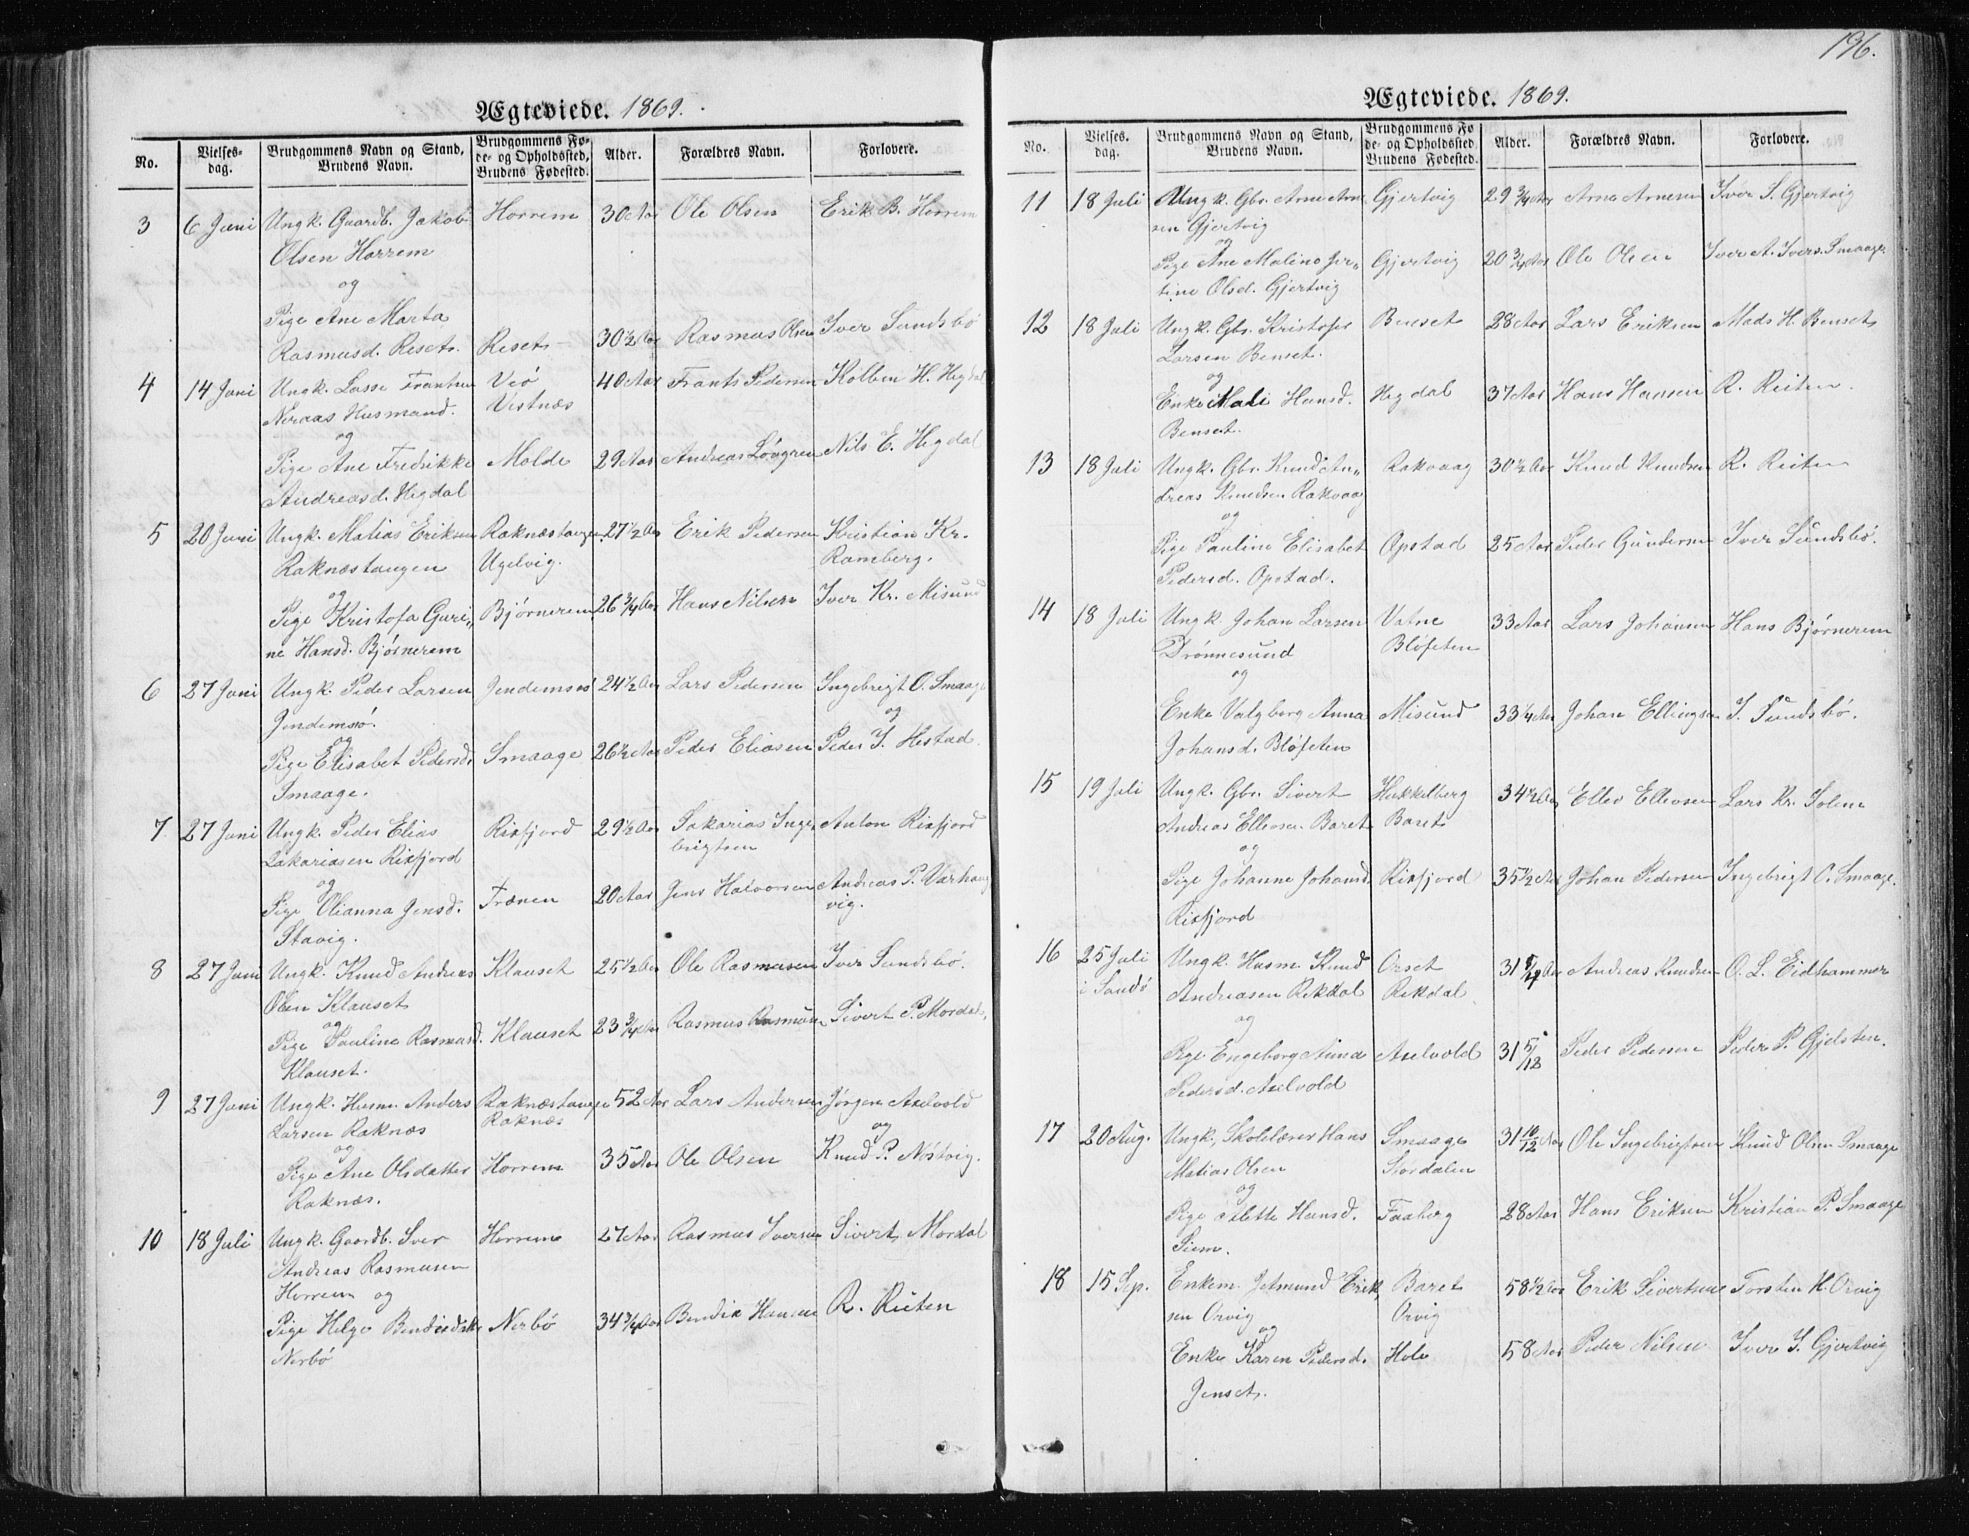 Ægteviede. 1869.
No.
Vielses-
dag.
Brudgommens Navn og Stand,
Brudens Navn.
Brudgommens Fø-
de- og Opholdssted,
Brudens Fødested.
Alder.
Forældres Navn.
Forlovere.
3 6 Juni Ungk. Gaardb. Jakob Horrem 30 Aar Ole Olsen Erik B. Horrem
Olsen Horrem
og
Pige Ane Marta
Rasmusd. Reset. Reset 30½ Aar Rasmus Olsen Iver Sundsbö
4 14 Juni Ungk. Lasse Frantsen Veö 40 Aar Frants Pedersen Kolben H. Hegdal
Neraas Husmand. Vestnæs
og
Pige Ane Fredrikke Molde 29 Aar Andreas Lövgren Nils E. Hegdal
Andreasd. Hegdal
5 20 Juni Ungk. Matias Eriksen Raknæstangen 27½ Aar Erik Pedersen Kristian Kr.
Raknæstangen Ugelvig. Ramberg.
og
Pige Kristofa Guri- Bjørnerem 26¾ Aar Hans Nilsen Iver Kr. Misund
ne Hansd. Bjørnerem
6 27 Juni Ungk. Peder Larsen Jendemsö 24½ Aar Lars Pedersen Ingebrigt O. Smaage
Jendemsö. og
og
Pige Elisabet Pedersd. Smaage 26½ Aar Peder Eliasen Peder I. Hestad
Smaage.
7 27 Juni Ungk. Peder Elias Rixfjord 29½ Aar Sakarias Inge- Anton Rixfjord
Zakariasen Rixfjord brigtsen
og
Pige Olianna Jensd. Frænen 20 Aar Jens Halvorsen Andreas P. Varhaug-
Stavig. vig.
8 27 Juni Ungk. Knud Andreas Klauset 25½ Aar Ole Rasmusen Iver Sundsbö.
Olsen Klauset
og
Pige Pauline Rasmusd. Klauset 23¾ Aar Rasmus Rasmusen Sivert P. Mordal
Klauset.
9 27 Juni Ungk. Husm. Anders Raknæstangen 52 Aar Lars Andersen Jörgen Axelvold
Larsen Raknæs Raknæs og
og
Pige Ane Olsdatter Horrem 35 Aar Ole Olsen Knud P. Nöstvig.
Raknæs.
10 18 Juli Ungk. Gaardb. Iver Horrem 27 Aar Rasmus Iversen Sivert Mordal
Andreas Rasmusen
Horrem og
Pige Helge Bendixdtr. Nerbö 34¾ Aar Bendix Hansen R. Reiten
Nerbö
196.
Ægteviede. 1869.
No.
Vielses-
dag.
Brudgommens Navn og Stand,
Brudens Navn.
Brudgommens Fø
de- og Opholdssted
Brudens Fødested.
Alder.
Forældres Navn.
Forlovere.
11 18 Juli Ungk. Gbr. Arne Arne- Gjertvig 29¾ Aar Arne Arnesen Iver S. Gjertvig
sen Gjertvig
og
Pige Ane Malino Jer- Gjertvig 20¾ Aar Ole Olsen Iver A. Ivers. Smaage
tine Olsd. Gjertvig
12 18 Juli Ungk. Gbr. Kristofer Benset 28 Aar Lars Eriksen Mads H. Benset
Larsen Benset.
og
Enke Mali Hansd. Hegdal 37 Aar Hans Hansen R. Reiten.
Benset.
13 18 Juli Ungk. Gbr. Knud An- Rakvaag 30½ Aar Knud Knudsen R. Reiten
dreas Knudsen Rakvaag
og
Pige Pauline Elisabet Opstad 25 Aar Peder Gundersen Iver Sundsbö.
Pedersd. Opstad.
14 18 Juli Ungk. Johan Larsen Vatne 33 Aar Lars Johansen Hans Bjørnerem
Drönnesund Blöfeten
og
Enke Valgborg Anna Misund 33¼ Aar Johan Ellingsen I. Sundsbö.
Johansd. Blöfeten
15 19 Juli Ungk. Gbr. Sivert Hukkelberg 34½ Aar Ellev Ellevsen Lars Kr. Solem
Andreas Ellevsen Baret Baret
og
Pige Johanne Johansd. Rixfjord 35½ Aar Johan Pedersen Ingebrigt O. Smaage.
Rixfjord
16 25 Juli Ungk. Husm. Knud Orset 31 Aar Andreas Knudsen O. L. Eidhammer
i Sandö Andreasen Rekdal Rekdal
og
Pige Engeborg Anna Axelvold 31 5/12 Peder Pedersen Peder P. Gjelsten.
Pedersd. Axelvold
17 20 Aug. Ungk, Skolelærer Hans Smaage 31 10/12 Aar Ole Ingebrigtsen Knud Olsen Smaage
Matias Olsen Stordalen
og
Pige Olette Hansd. Faaberg 28 Aar Hans Eriksen Kristian P. Smaage
Siem.
18 15 Sep. Enkem. Jetmund Erik- Baret 58½ Aar Erik Sivertsen Torsten H. Orvig
sen Orvig Orvig
og
Enke Karen Pedersd. Hole 58 Aar Peder Nilsen Iver S. Gjertvig
Jenset.